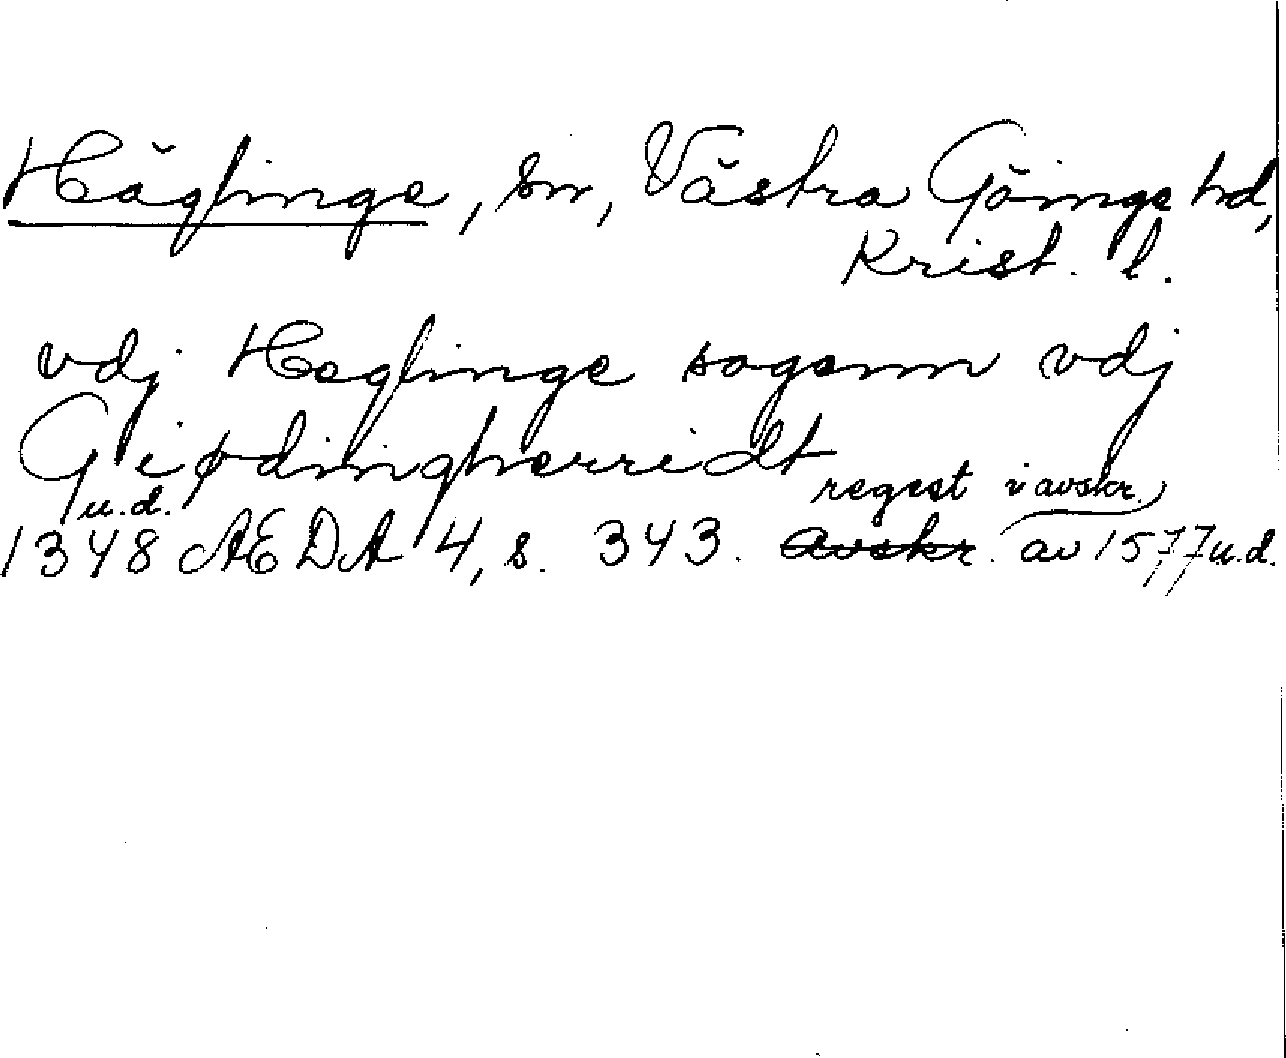 Häglinge, sn, Västra Göinge hd,
Krist. l.
vdj Heglinge sogenn vdj
Giødingherridt
regest i avskr.
u.d.
1348 AEDA 4, s. 343. Avskr. av 1577 u.d.